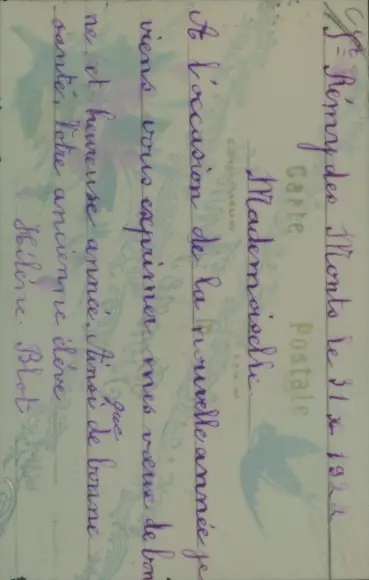 St Rémy des Monts le 31 x 1922
Carte Postale
Mademoiselle
A l'occasion de la nouvelle année je
viens vous exprimer mes vœux de bon
ne et heureuse année. Ainsi que de bonne
santé. Votre ancienne élève
Hélène Blot